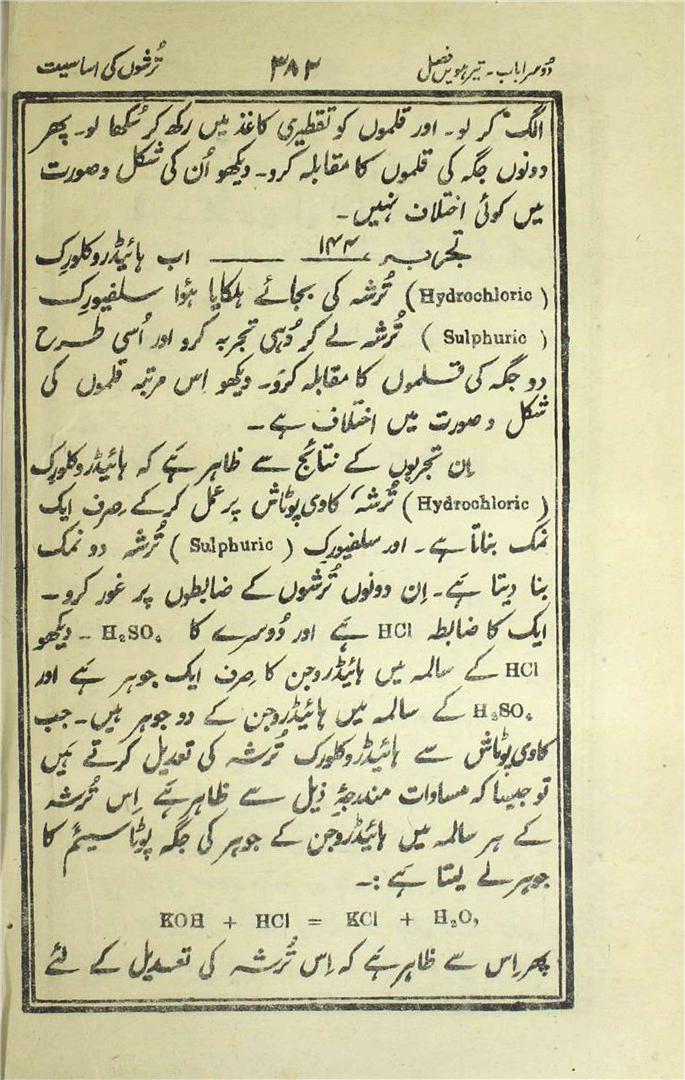 دُوسرا باب ۔ تیرہویں فصل ۳۸۲ تُرشوں کی اساسیت
الگ کر لو۔ اور قلموں کو تقطیری کاغذ میں رکھ کر سُکھا لو۔ پھر
دونوں جگہ کی قلموں کا مقابلہ کرو۔ دیکھو اُن کی شکل و صورت
میں کوئی اختلاف نہیں۔
تجربہ ۱۴۴ ــــــ اب ہائیڈروکلورک
(Hydrochloric) تُرشہ کی بجائے ہلکایا ہؤا سلفیورک
(Sulphuric) تُرشہ لے کر وُہی تجربہ کرو اور اُسی طرح
دو جگہ کی قلموں کا مقابلہ کرو۔ دیکھو اِس مرتبہ قلموں کی
شکل و صورت میں اختلاف ہے۔
اِن تجربوں کے نتائج سے ظاہر ہے کہ ہائیڈروکلورک
(Hydrochloric) تُرشہ، کاوی پوٹاش پر عمل کرکے صِرف ایک
نمک بناتا ہے۔ اور سلفیورک (Sulphuric) تُرشہ دو نمک
بنا دیتا ہے۔ اِن دونوں تُرشوں کے ضابطوں پر غور کرو۔
ایک کا ضابطہ HCl ہے اور دُوسرے کا H₂SO₄ ۔ دیکھو
HCl کے سالمہ میں ہائیڈروجن کا صِرف ایک جوہر ہے اور
H₂SO₄ کے سالمہ میں ہائیڈروجن کے دو جوہر ہیں۔ جب
کاوی پوٹاش سے ہائیڈروکلورک تُرشہ کی تعدیل کرتے ہیں
تو جیسا کہ مساوات مندرجۂ ذیل سے ظاہر ہے اِس تُرشہ
کے ہر سالمہ میں ہائیڈروجن کے جوہر کی جگہ پوٹاسیئم کا
جوہر لے لیتا ہے :۔
KOH + HCl = KCl + H₂O,
پھر اِس سے ظاہر ہے کہ اِس تُرشہ کی تعدیل کے لئے